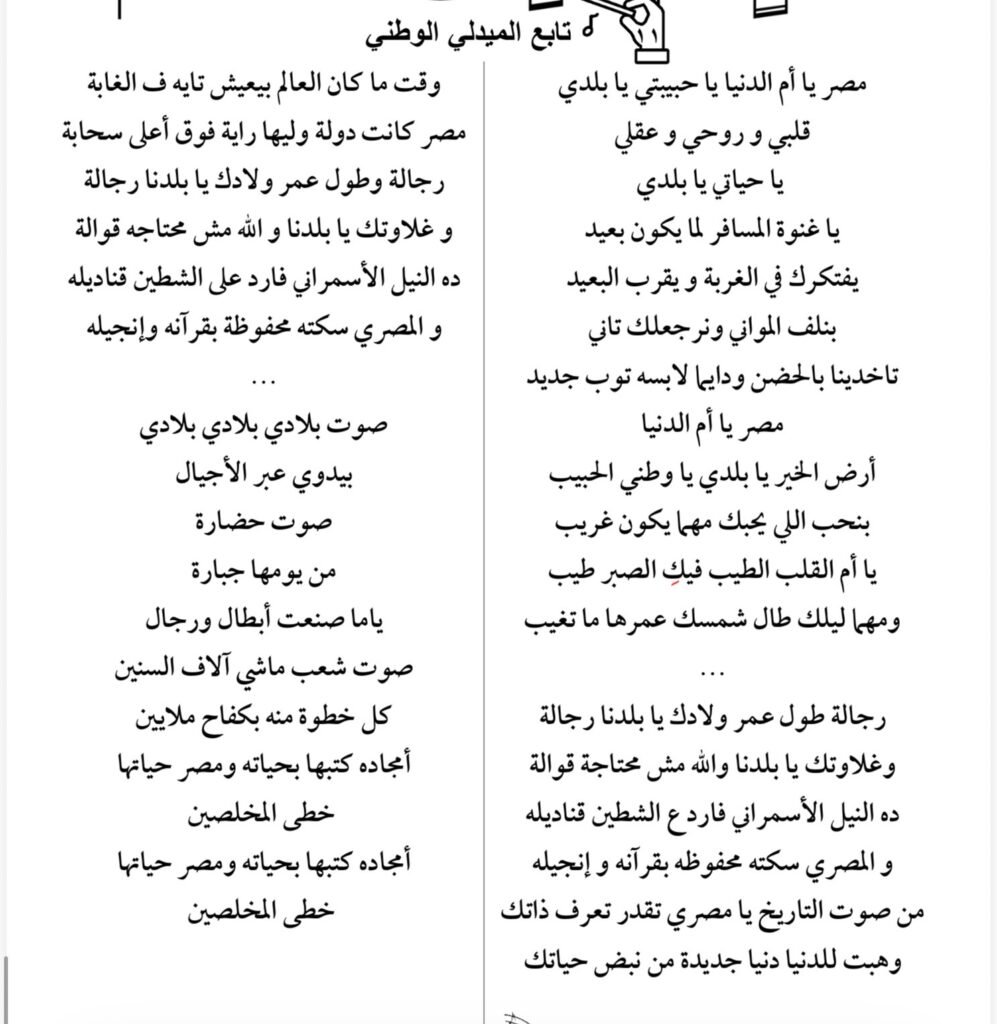 تابع الميدلي الوطني
مصر يا أم الدنيا يا حبيبتي يا بلدي
قلبي و روحي و عقلي
يا حياتي يا بلدي
يا غنوة المسافر لما يكون بعيد
يفتكرك في الغربة و يقرب البعيد
بنلف المواني ونرجعلك تاني
تاخدينا بالحضن ودايما لابسه توب جديد
مصر يا أم الدنيا
أرض الخير يا بلدي يا وطني الحبيب
بنحب اللي يحبك مهما يكون غريب
يا أم القلب الطيب فيكِ الصبر طيب
ومهما ليلك طال شمسك عمرها ما تغيب
...
رجالة طول عمر ولادك يا بلدنا رجالة
وغلاوتك يا بلدنا والله مش محتاجة قوالة
ده النيل الأسمراني فارد ع الشطين قناديله
و المصري سكته محفوظه بقرآنه و إنجيله
من صوت التاريخ يا مصري تقدر تعرف ذاتك
وهبت للدنيا دنيا جديدة من نبض حياتك
وقت ما كان العالم بيعيش تايه ف الغابة
مصر كانت دولة وليها راية فوق أعلى سحابة
رجالة وطول عمر ولادك يا بلدنا رجالة
و غلاوتك يا بلدنا و الله مش محتاجه قوالة
ده النيل الأسمراني فارد على الشطين قناديله
و المصري سكته محفوظة بقرآنه وإنجيله
...
صوت بلادي بلادي بلادي
بيدوي عبر الأجيال
صوت حضارة
من يومها جبارة
ياما صنعت أبطال ورجال
صوت شعب ماشي آلاف السنين
كل خطوة منه بكفاح ملايين
أمجاده كتبها بحياته ومصر حياتها
خطى المخلصين
أمجاده كتبها بحياته ومصر حياتها
خطى المخلصين